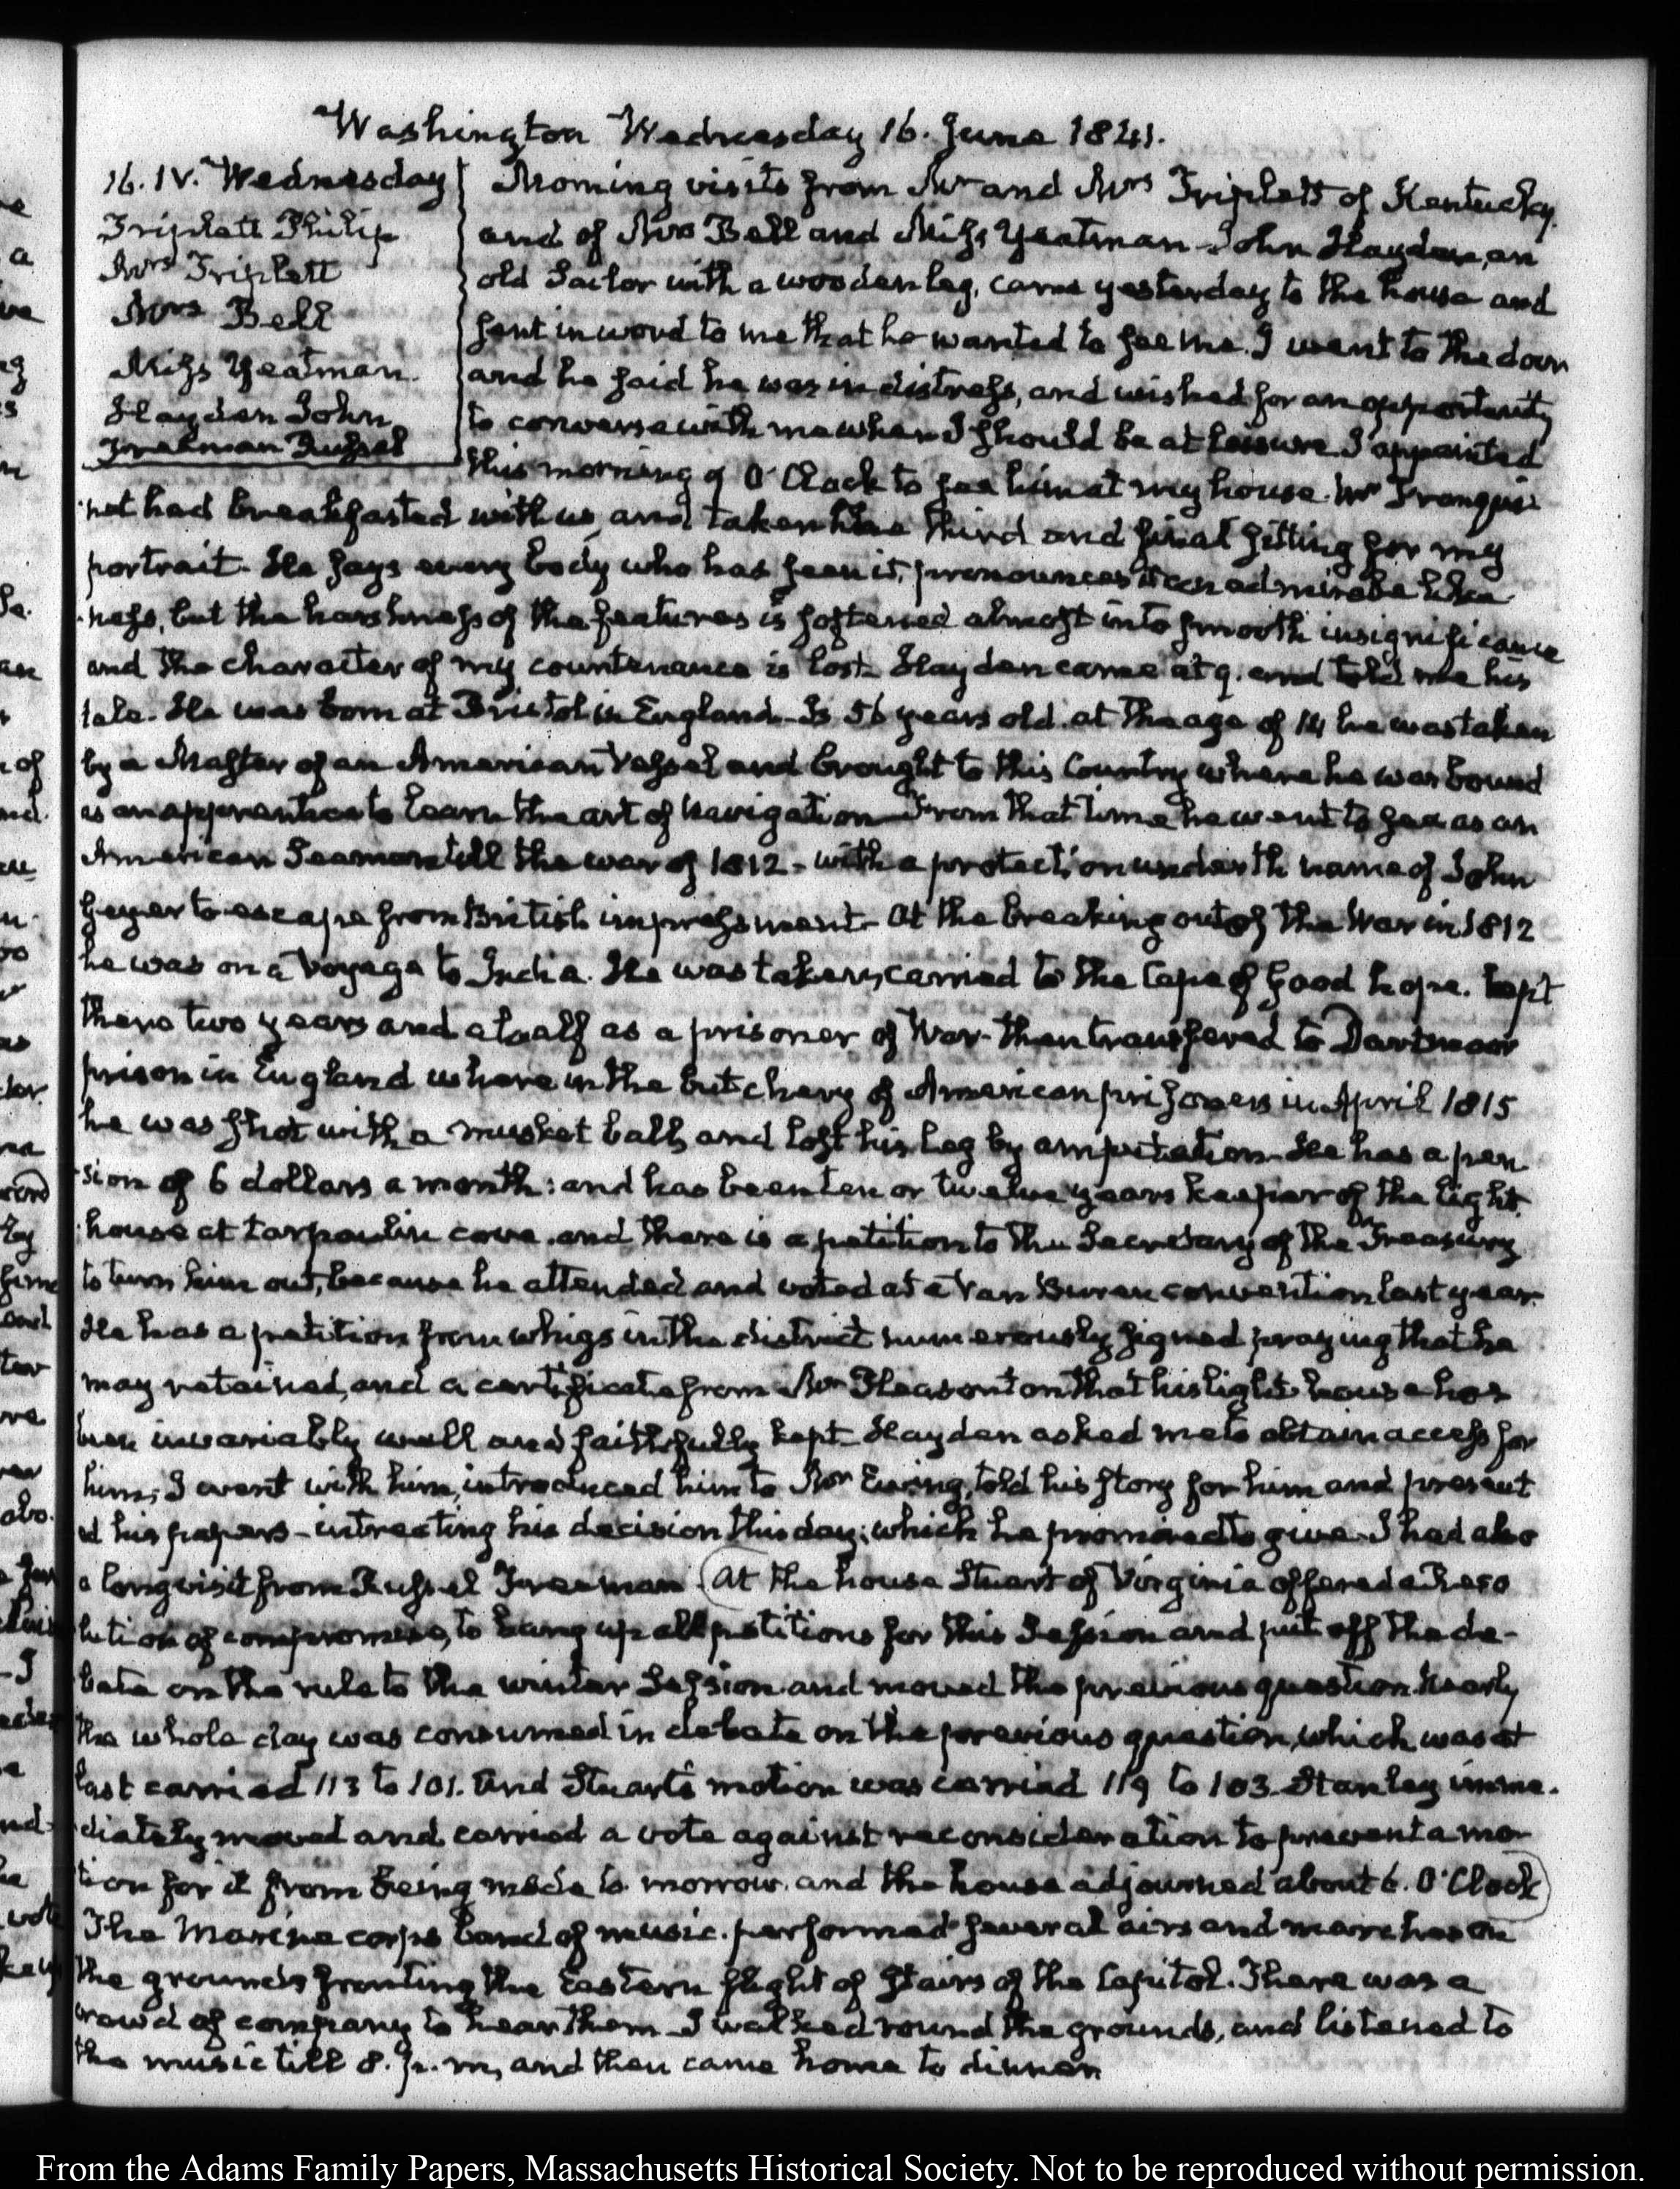 Washington Wednesday 16. June 1841.
16. IV. Wednesday
Triplett Philip
Mrs Triplett
Mrs Bell
Miss Yeatman.
Hayden John
Freeman Russel
Morning visits from Mr and Mrs Triplett of Kentucky
and of Mrs Bell and Miss Yeatman. John Hayden, an
old Sailor with a wooden leg, came yesterday to the house and
sent in word to me that he wanted to see me. I went to the door
and he said he was in distress, and wished for an opportunity
to converse with me when I should be at leisure. I appointed
this morning 9 O'Clock to see him at my house. Mr Franqui-
net had breakfasted with us, and taken the third and final sitting for my
portrait. He says every body who has seen it, pronounces it an admirable like-
ness, but the harshness of the features is softened almost into smooth insignificance
and the character of my countenance is lost. Hayden came at 9. and told me his
tale. He was born at Bristol in England. Is 56 years old. at the age of 14 he was taken
by a Master of an American Vessel and brought to this Country where he was bound
as an apprentice to learn the art of Navigation. From that time he went to sea as an
American Seaman till the war of 1812 - with a protection under th name of John
Geyer to escape from British impressment. At the breaking out of the War in 1812
he was on a Voyage to India. He was taken, carried to the Cape of Good hope. kept
there two years and a half as a prisoner of War. then transfered to Dartmoor
prison in England where in the butchery of American prisoners in April 1815
he was shot with a musket ball, and lost his leg by amputation. He has a pen
sion of 6 dollars a month: and has been ten or twelve years keeper of the light
house at tarpaulin cove. and there is a petition to the Secretary of the Treasury
to turn him out, because he attended and voted at a Van Buren convention last year.
He has a petition from whigs in the district numerously signed praying that he
may retained, and a certificate from Mr Pleasonton that his light house has
been invariably well and faithfully kept. Hayden asked me to obtain access for
him; I went with him, introduced him to Mr Ewing, told his story for him and present
ed his papers - intreating his decision this day; which he promised to give. I had also
a long visit from Russel Freeman. (At the house Stuart of Virginia offered a Reso
lution of compromise, to hang up all petitions for this Session and put off the de-
bate on the rule to the winter Session and moved the previous question. Nearly
the whole day was consumed in debate on the previous question, which was at
last carried 113 to 101. And Stuart's motion was carried 119 to 103. Stanley imme-
diately moved and carried a vote against reconsideration to prevent a mo-
tion for it from being made to morrow. and the house adjourned about 6. O'Clock)
The Marine corps band of music. performed several airs and marches on
the grounds fronting the Eastern flight of stairs of the Capitol. There was a
crowd of company to hear them. I walked round the grounds, and listened to
the music till 8. p. m, and then came home to dinner
From the Adams Family Papers, Massachusetts Historical Society. Not to be reproduced without permission.